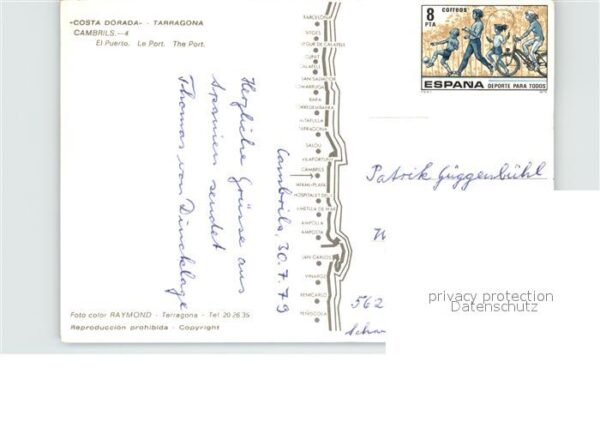 «COSTA DORADA» - TARRAGONA
CAMBRILS.—4
El Puerto. Le Port. The Port.
Herzliche Grüsse aus
Spanien sendet
Thomas von Dincklage
Cambrils, 30.7.79
Foto color RAYMOND - Tarragona - Tel 20 26 35
Reproducción prohibida - Copyright
BARCELONA
SITGES
CUNIT
CALAFELL
SAN SALVADOR
COMARRUGA
TORREDEMBARRA
ALTAFULLA
TARRAGONA
SALOU
VILAFORTUNY
CAMBRILS
MIAMI-PLAYA
HOSPITALET DEL I.
AMETLLA DE MAR
AMPOLLA
AMPOSTA
SAN CARLOS
VINAROZ
BENICARLO
PEÑISCOLA
8
PTA
correos
ESPAÑA DEPORTE PARA TODOS
Patrik Güggenbühl
562
privacy protection
Datenschutz